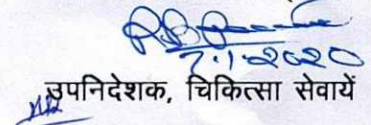 7.1.2020
उपनिदेशक, चिकित्सा सेवायें